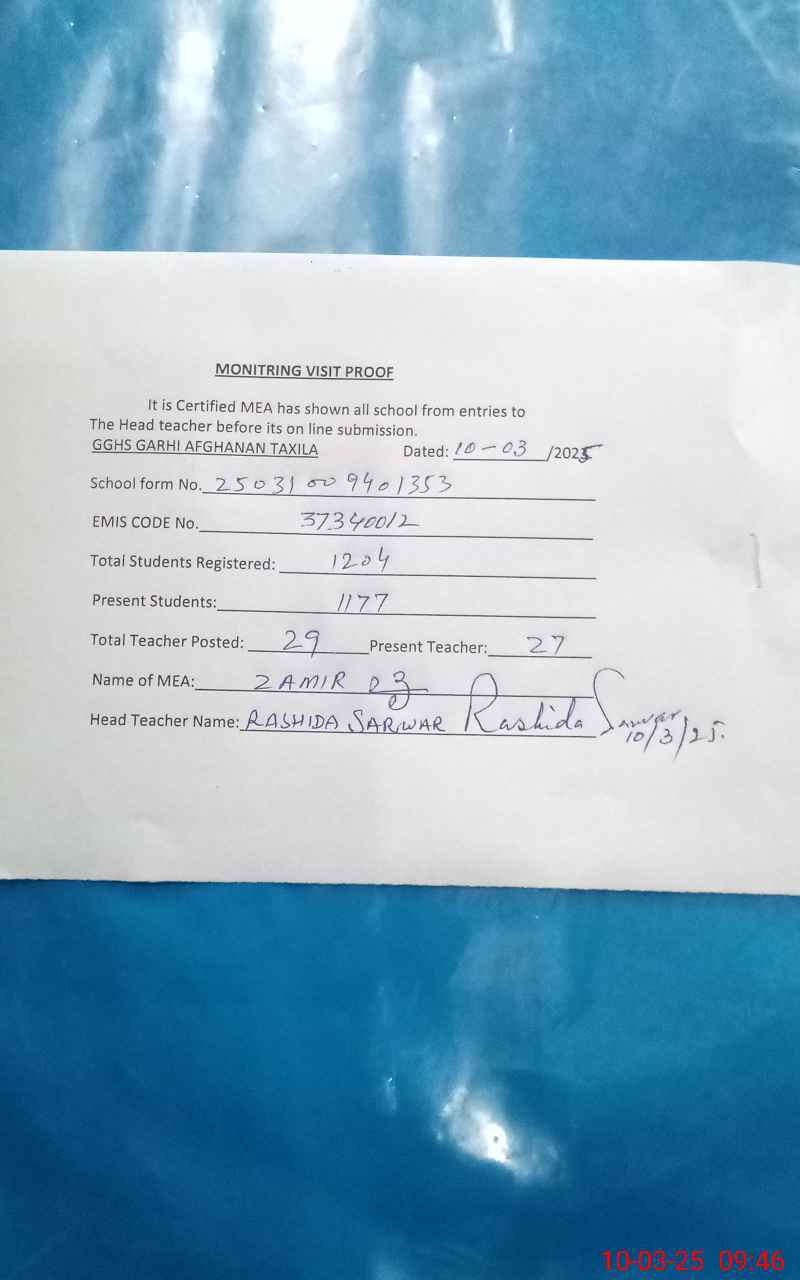 MONITRING VISIT PROOF
It is Certified MEA has shown all school from entries to
The Head teacher before its on line submission.
GGHS GARHI AFGHANAN TAXILA Dated: 10-03 /2025
School form No. 25031009401353
EMIS CODE No. 37340012
Total Students Registered: 1204
Present Students: 1177
Total Teacher Posted: 29 Present Teacher: 27
Name of MEA: ZAMIR
Head Teacher Name: RASHIDA SARWAR Rashida Sarwar
10/3/25.
10-03-25 09:46